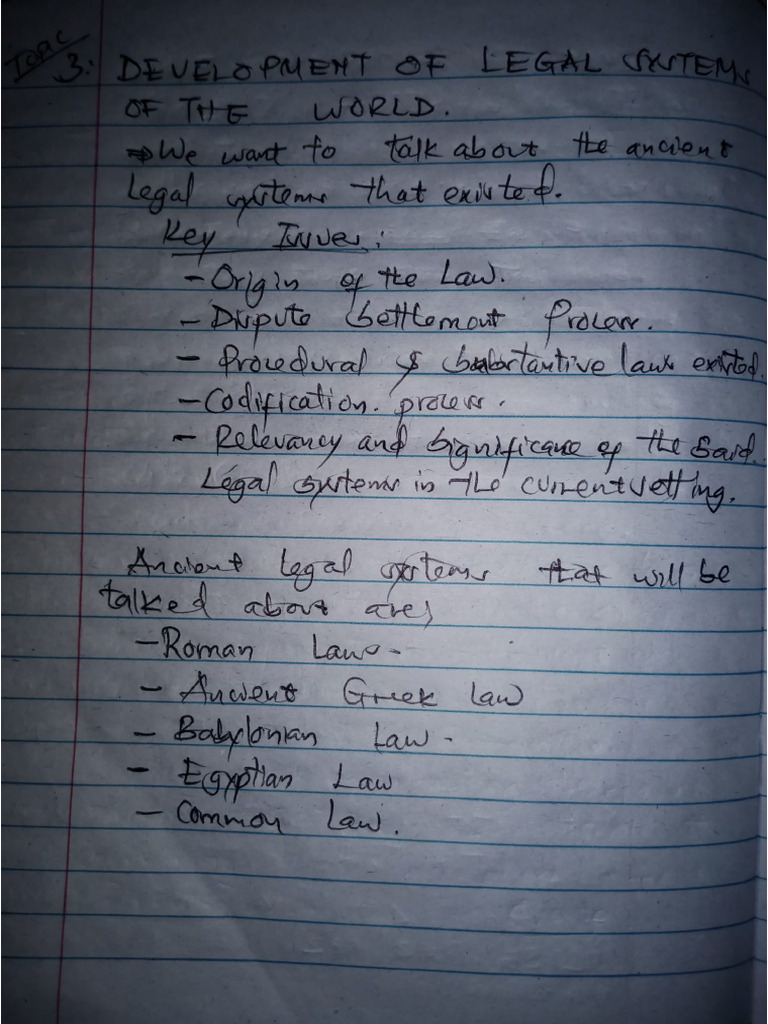 TOPIC
3: DEVELOPMENT OF LEGAL SYSTEMS
OF THE WORLD.
→ We want to talk about the ancient
Legal systems that existed.
Key Issues:
- Origin of the Law.
- Dispute Settlement Process.
- Procedural & Substantive laws existed.
- Codification. process.
- Relevancy and Significance of the Said.
Legal systems in the current setting.
Ancient Legal systems that will be
talked about are;
- Roman Law.
- Ancient Greek Law
- Babylonian Law.
- Egyptian Law
- Common Law.